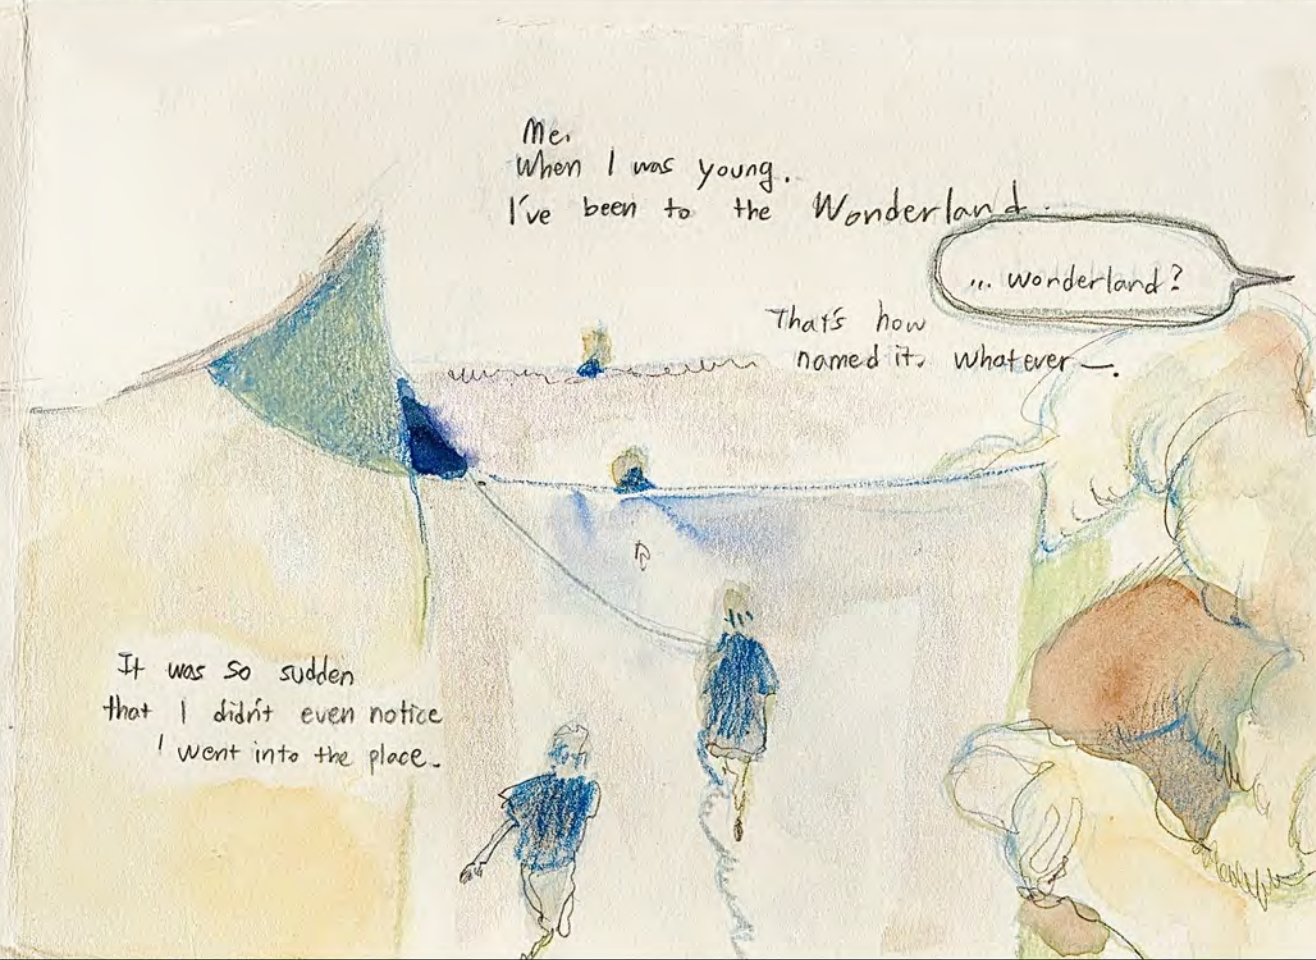 Me.
When I was young.
I've been to the Wonderland.
... wonderland?
That's how
named it. whatever —.
It was so sudden
that I didn't even notice
I went into the place.